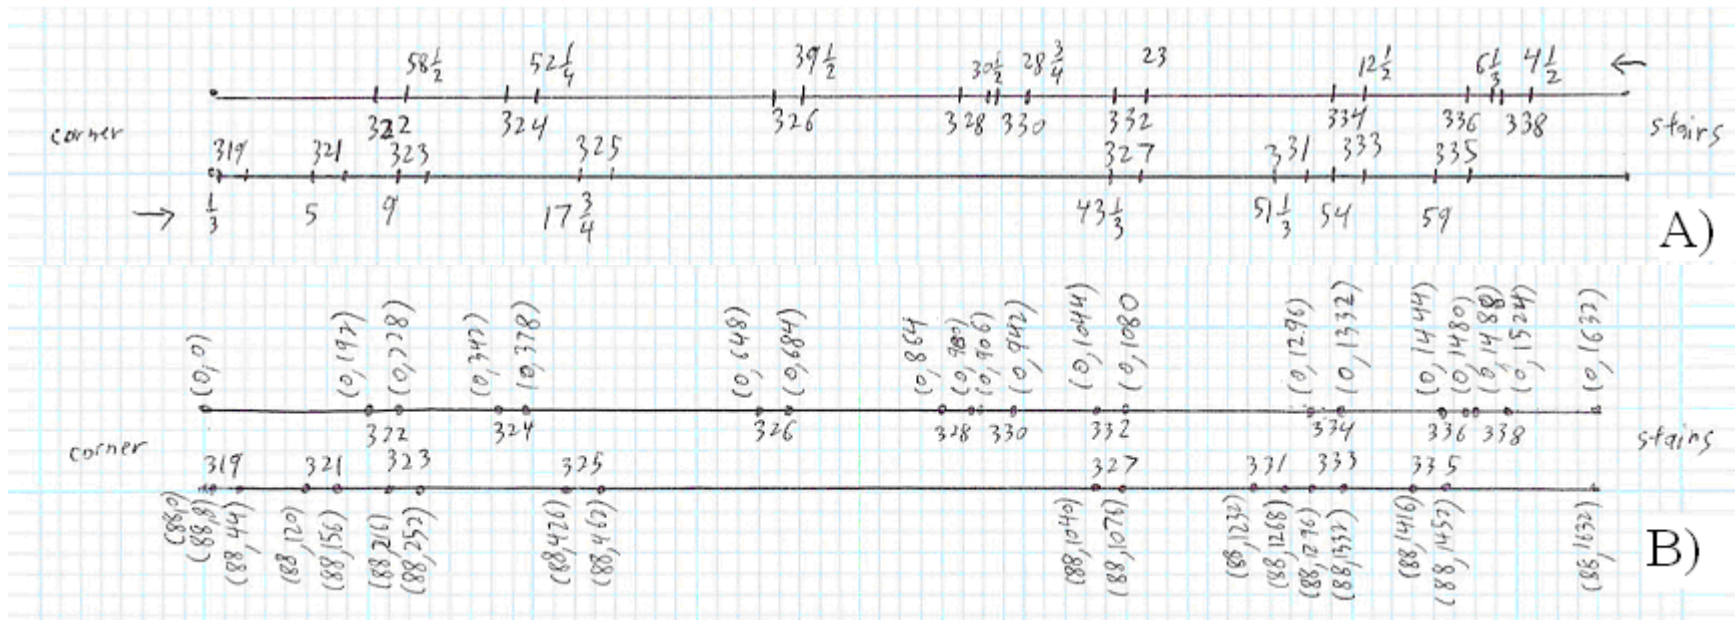 58 1/2 52 1/4 39 1/2 30 1/2 28 3/4 23 12 1/2 6 1/3 4 1/2 ←
corner 322 324 326 328 330 332 334 336 338 stairs
319 321 323 325 327 331 333 335
→ 1/3 5 9 17 3/4 43 1/3 51 1/3 54 59
A)
(0,0) (0,192) (0,228) (0,342) (0,378) (0,648) (0,684) (0,864 (0,900) (0,906) (0,942) (0,1044) (0,1080 (0,1296) (0,1332) (0,1444) (0,1480) (0,1488) (0,1524) (0,1632)
322 324 326 328 330 332 334 336 338
corner stairs
319 321 323 325 327 331 333 335
(88,0) (88,8) (88,44) (88,120) (88,156) (88,216) (88,252) (88,426) (88,462) (88,1040) (88,1076) (88,1232) (88,1268) (88,1296) (88,1332) (88,1416) (88,1452) (88,1632)
B)